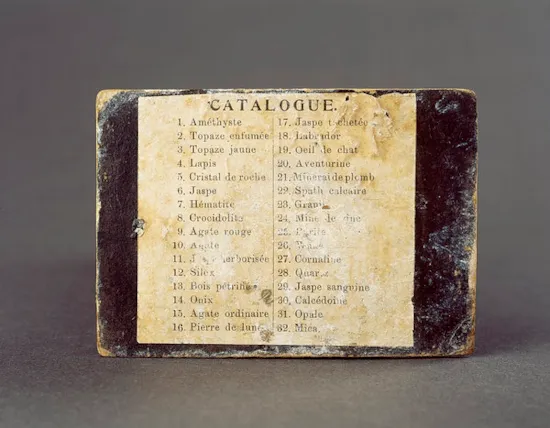 CATALOGUE.
1. Améthyste
2. Topaze enfumée
3. Topaze jaune
4. Lapis
5. Cristal de roche
6. Jaspe
7. Hématite
8. Crocidolite
9. Agate rouge
10. Agate
11. herborisée
12. Silex
13. Bois pétrifié
14. Onix
15. Agate ordinaire
16. Pierre de lune
17. Jaspe
18. Labrador
19. Oeil de chat
20. Aventurine
21. Minerai de plomb
29. Spath calcaire
23.
24. Mine de zinc
25.
26.
27. Cornaline
28 Quartz
29. Jaspe sanguine
30. Calcédoine
31. Opale
32. Mica